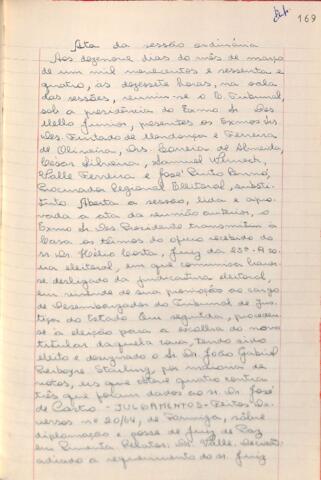 169
Ata da sessão ordinária
Aos dezenove dias do mês de março
de um mil novecentos e sessenta e
quatro, às dezessete horas, na sala
das sessões, reuniu-se o E. Tribunal,
sob a presidência do Exmo Sr. Des.
Mello Júnior, presentes os Exmos Srs.
Des. Furtado de Mendonça e Ferreira
de Oliveira, Drs. Correia de Almeida,
Cesar Silveira, Samuel
Valle Ferreira e José Pinto
Procurador Regional Eleitoral, substi-
tuto. Aberta a sessão, lida e apro-
vada a ata da reunião anterior, o
Exmo Sr. Des. Presidente transmitiu à
Casa os têrmos do ofício recebido do
sr. Dr. Hélio Costa, juiz da 25ª zo-
na eleitoral, em que comunica haver
se desligado da judicatura eleitoral,
em virtude de sua promoção ao cargo
de Desembargador do Tribunal de Jus-
tiça do Estado. Em seguida, procedeu-
se à eleição para a escolha do novo
titular daquela zona, tendo sido
eleito e designado o Sr. Dr. João Gabriel
Perboyre Starling, por maioria de
votos, eis que obteve quatro contra
três que foram dados ao sr. Dr. José
de Castro. - JULGAMENTOS - Feitos Di-
versos nº 20/64, de Formiga, sôbre
diplomação e posse de juiz de Paz
em Pimenta. Relator: Dr. Valle. Decisão:
adiado a requerimento do sr. Juiz